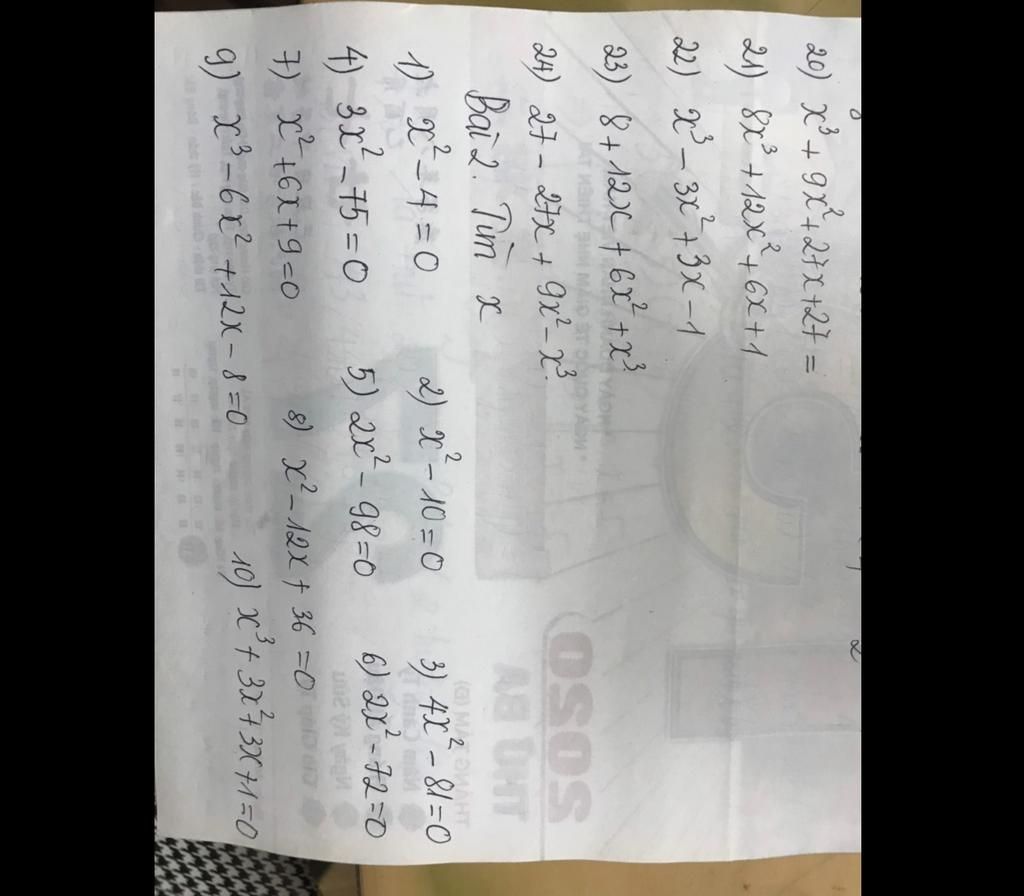 20) x³ + 9x² + 27x + 27 =
21) 8x³ + 12x² + 6x + 1
22) x³ - 3x² + 3x - 1
23) 8 + 12x + 6x² + x³
24) 27 - 27x + 9x² - x³.
Bài 2. Tìm x
1) x² - 4 = 0 2) x² - 10 = 0 3) 4x² - 81 = 0
4) 3x² - 75 = 0 5) 2x² - 98 = 0 6) 2x² - 72 = 0
7) x² + 6x + 9 = 0 8) x² - 12x + 36 = 0
9) x³ - 6x² + 12x - 8 = 0 10) x³ + 3x² + 3x + 1 = 0
2020
THỨ BA
THÁNG TÁM (Đ)